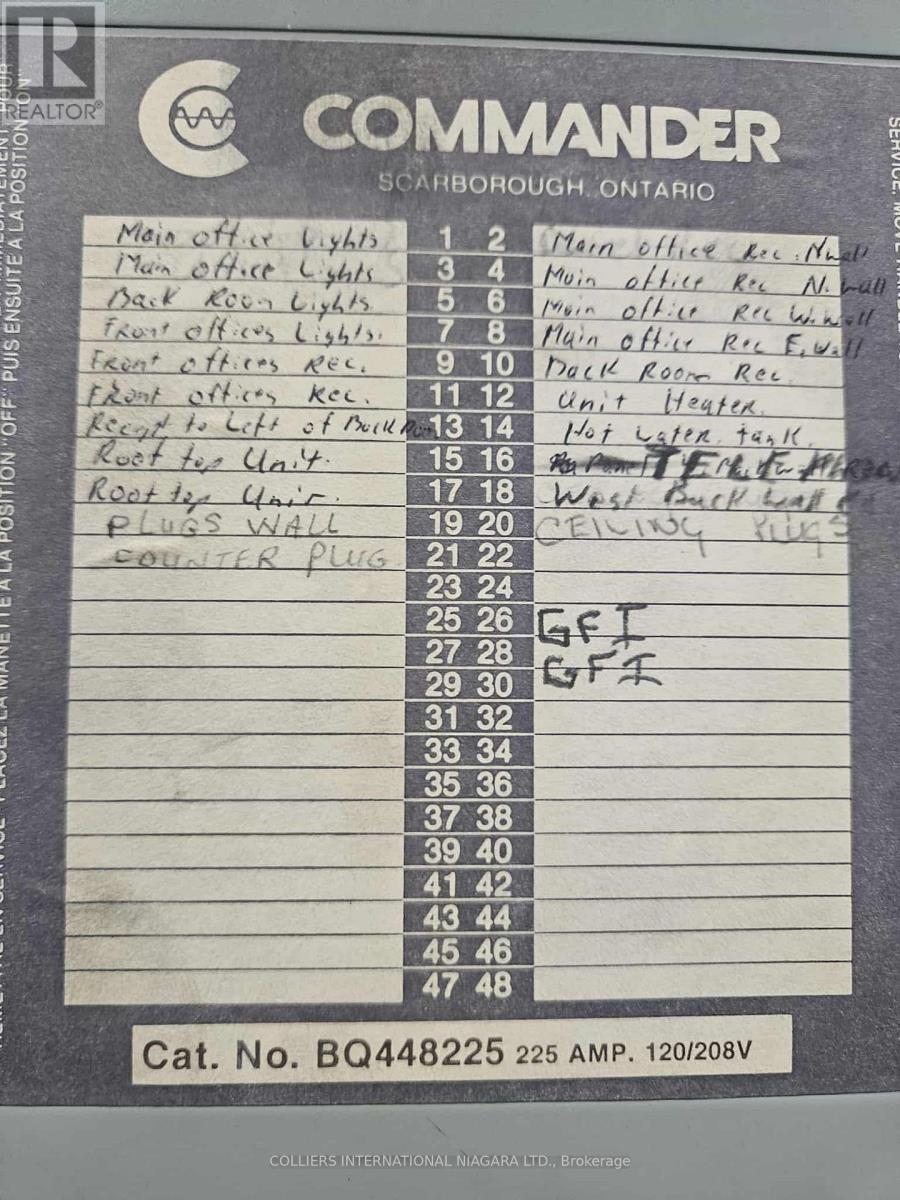 REALTOR®
COMMANDER
SCARBOROUGH, ONTARIO
Main office Lights 1 2 Main office Rec. N wall
Main office Lights 3 4 Main office Rec N. wall
Back Room Lights 5 6 Main office Rec W. wall
Front offices Lights. 7 8 Main office Rec E. Wall
Front offices Rec. 9 10 Back Room Rec.
Front offices Rec. 11 12 Unit Heater.
Recept to Left of Back 13 14 Hot water tank.
Roof top Unit. 15 16
Roof top Unit. 17 18 West Back wall
PLUGS WALL 19 20 CEILING PLUGS
COUNTER PLUG 21 22
23 24
25 26 GFI
27 28 GFI
29 30
31 32
33 34
35 36
37 38
39 40
41 42
43 44
45 46
47 48
Cat. No. BQ448225 225 AMP. 120/208V
PUIS ENSUITE A LA POSITION "ON"
PLACEZ LA MANETTE A LA POSITION "OFF"
COLLIERS INTERNATIONAL NIAGARA LTD., Brokerage